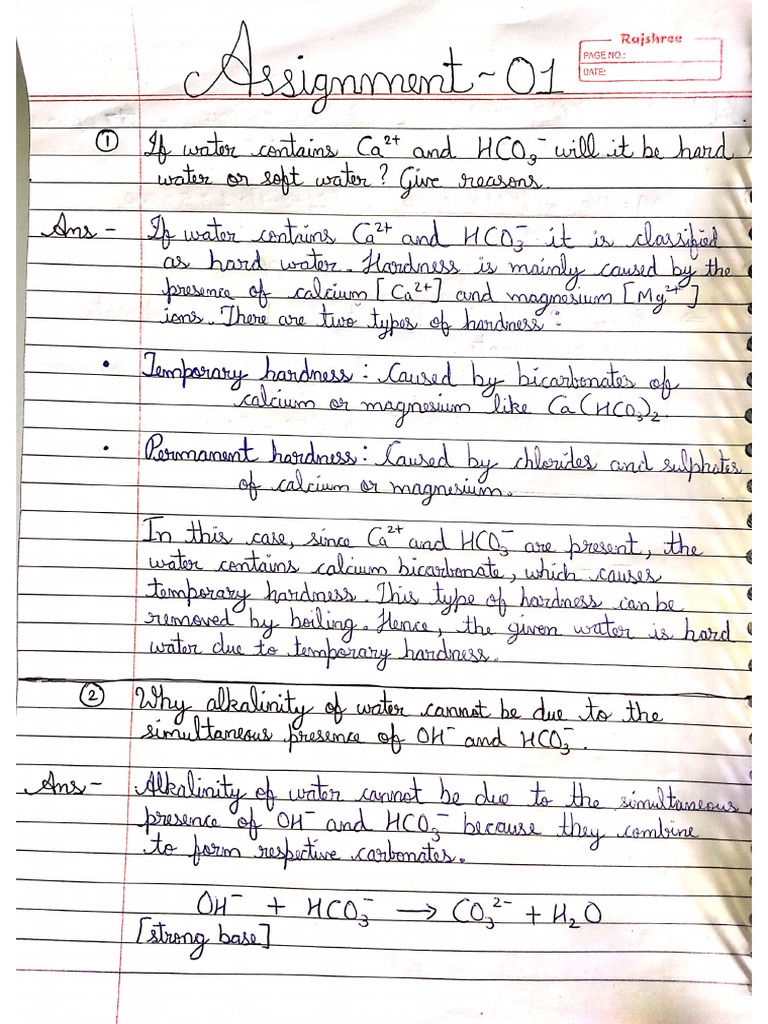 Rajshree
PAGE NO.:
DATE:
Assignment - 01
① If water contains Ca²⁺ and HCO₃⁻ will it be hard
water or soft water? Give reasons.
Ans - If water contains Ca²⁺ and HCO₃⁻ it is classified
as hard water. Hardness is mainly caused by the
presence of calcium [Ca²⁺] and magnesium [Mg²⁺]
ions. There are two types of hardness:
• Temporary hardness: Caused by bicarbonates of
calcium or magnesium like Ca(HCO₃)₂.
• Permanent hardness: Caused by chlorides and sulphates
of calcium or magnesium.
In this case, since Ca²⁺ and HCO₃⁻ are present, the
water contains calcium bicarbonate, which causes
temporary hardness. This type of hardness can be
removed by boiling. Hence, the given water is hard
water due to temporary hardness.
② Why alkalinity of water cannot be due to the
simultaneous presence of OH⁻ and HCO₃⁻.
Ans - Alkalinity of water cannot be due to the simultaneous
presence of OH⁻ and HCO₃⁻ because they combine
to form respective carbonates.
OH⁻ + HCO₃⁻ → CO₃²⁻ + H₂O
[strong base]